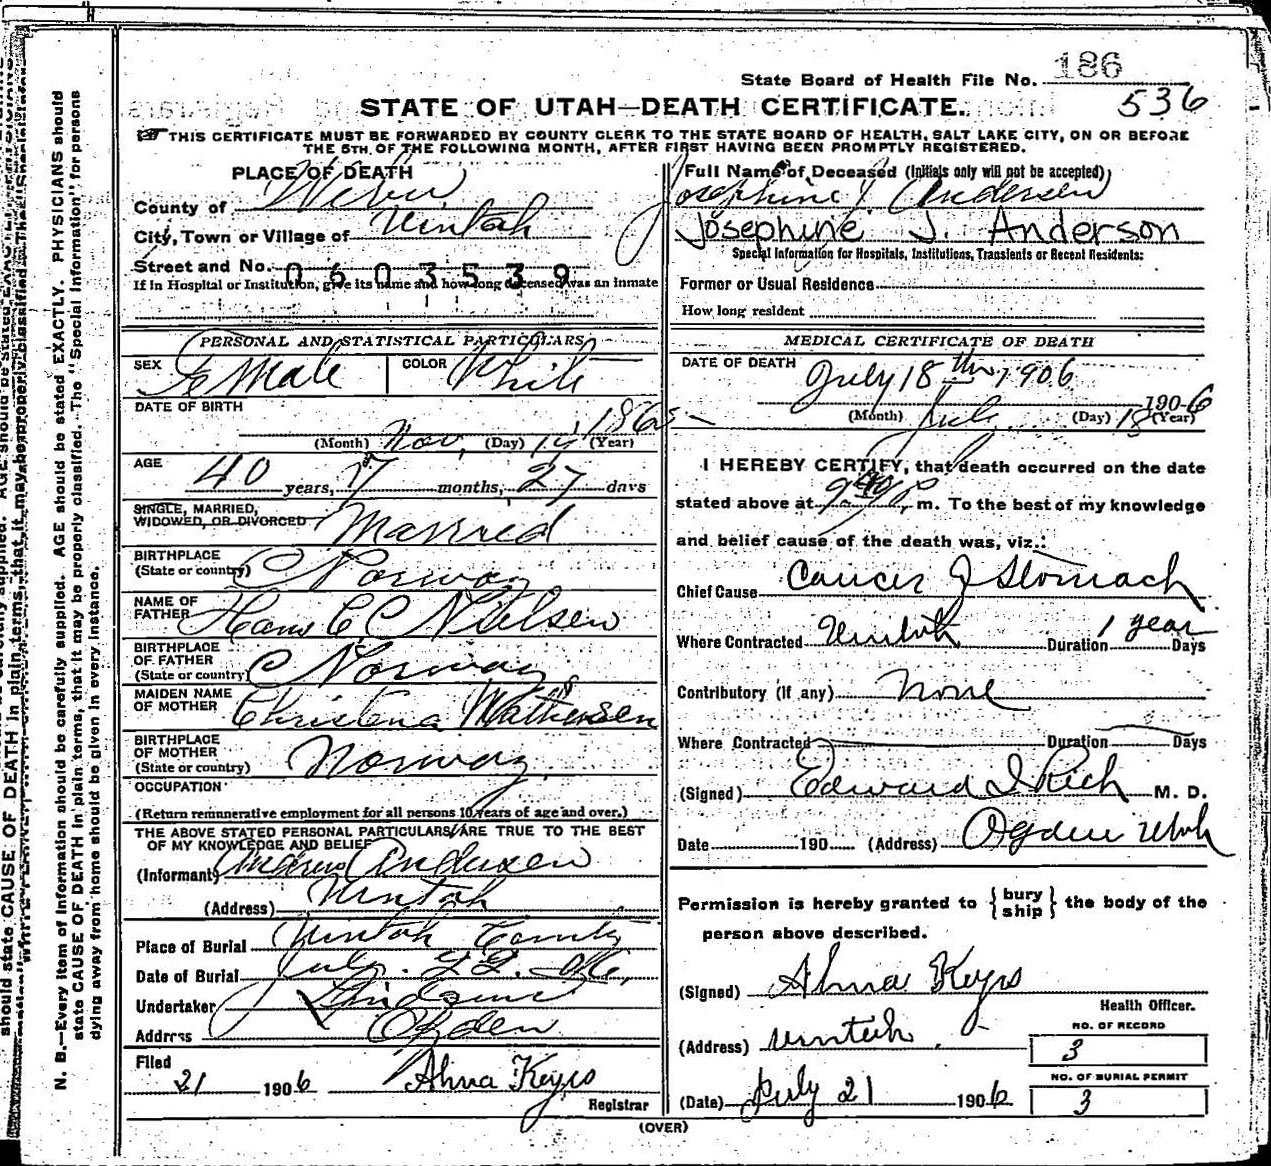 State Board of Health File No. 186
536
STATE OF UTAH—DEATH CERTIFICATE.
THIS CERTIFICATE MUST BE FORWARDED BY COUNTY CLERK TO THE STATE BOARD OF HEALTH, SALT LAKE CITY, ON OR BEFORE
THE 5TH, OF THE FOLLOWING MONTH, AFTER FIRST HAVING BEEN PROMPTLY REGISTERED.
PLACE OF DEATH
County of Weber
City, Town or Village of Uintah
Street and No. 0603539
If in Hospital or Institution, give its name and how long deceased was an inmate
PERSONAL AND STATISTICAL PARTICULARS
SEX Female COLOR White
DATE OF BIRTH
(Month) Nov, (Day) 14 (Year) 1865
AGE
40 years, 7 months, 27 days
SINGLE, MARRIED,
WIDOWED, OR DIVORCED Married
BIRTHPLACE
(State or country) Norway
NAME OF
FATHER Hans C Nielsen
BIRTHPLACE
OF FATHER
(State or country) Norway
MAIDEN NAME
OF MOTHER Christena Mathewsen
BIRTHPLACE
OF MOTHER
(State or country) Norway
OCCUPATION
(Return remunerative employment for all persons 10 years of age and over.)
THE ABOVE STATED PERSONAL PARTICULARS ARE TRUE TO THE BEST
OF MY KNOWLEDGE AND BELIEF
(Informant) Andrew Andersen
(Address) Uintah
Place of Burial Uintah Cemty
Date of Burial July. 22. 06,
Undertaker
Address Ogden
Filed
21 1906 Alma Keyes
Registrar
Full Name of Deceased (Initials only will not be accepted)
Josephine J. Andersen
Josephine J. Anderson
Special Information for Hospitals, Institutions, Transients or Recent Residents:
Former or Usual Residence
How long resident
MEDICAL CERTIFICATE OF DEATH
DATE OF DEATH July 18th 1906
1906
(Month) July (Day) 18 (Year)
I HEREBY CERTIFY, that death occurred on the date
stated above at 9 P. m. To the best of my knowledge
and belief cause of the death was, viz.:
Chief Cause Cancer of Stomach
Where Contracted Uintah Duration 1 year Days
Contributory (if any) None
Where Contracted Duration Days
(Signed) Edward I Rich M. D.
Date 190 (Address) Ogden Utah
Permission is hereby granted to { bury ship } the body of the
person above described.
(Signed) Alma Keyes
Health Officer.
(Address) Uintah
NO. OF RECORD
3
NO. OF BURIAL PERMIT
3
(Date) July 21 1906
(OVER)
N. B.—Every item of information should be carefully supplied. AGE should be stated EXACTLY. PHYSICIANS should
state CAUSE OF DEATH in plain terms, that it may be properly classified. The "Special Information" for persons
dying away from home should be given in every instance.